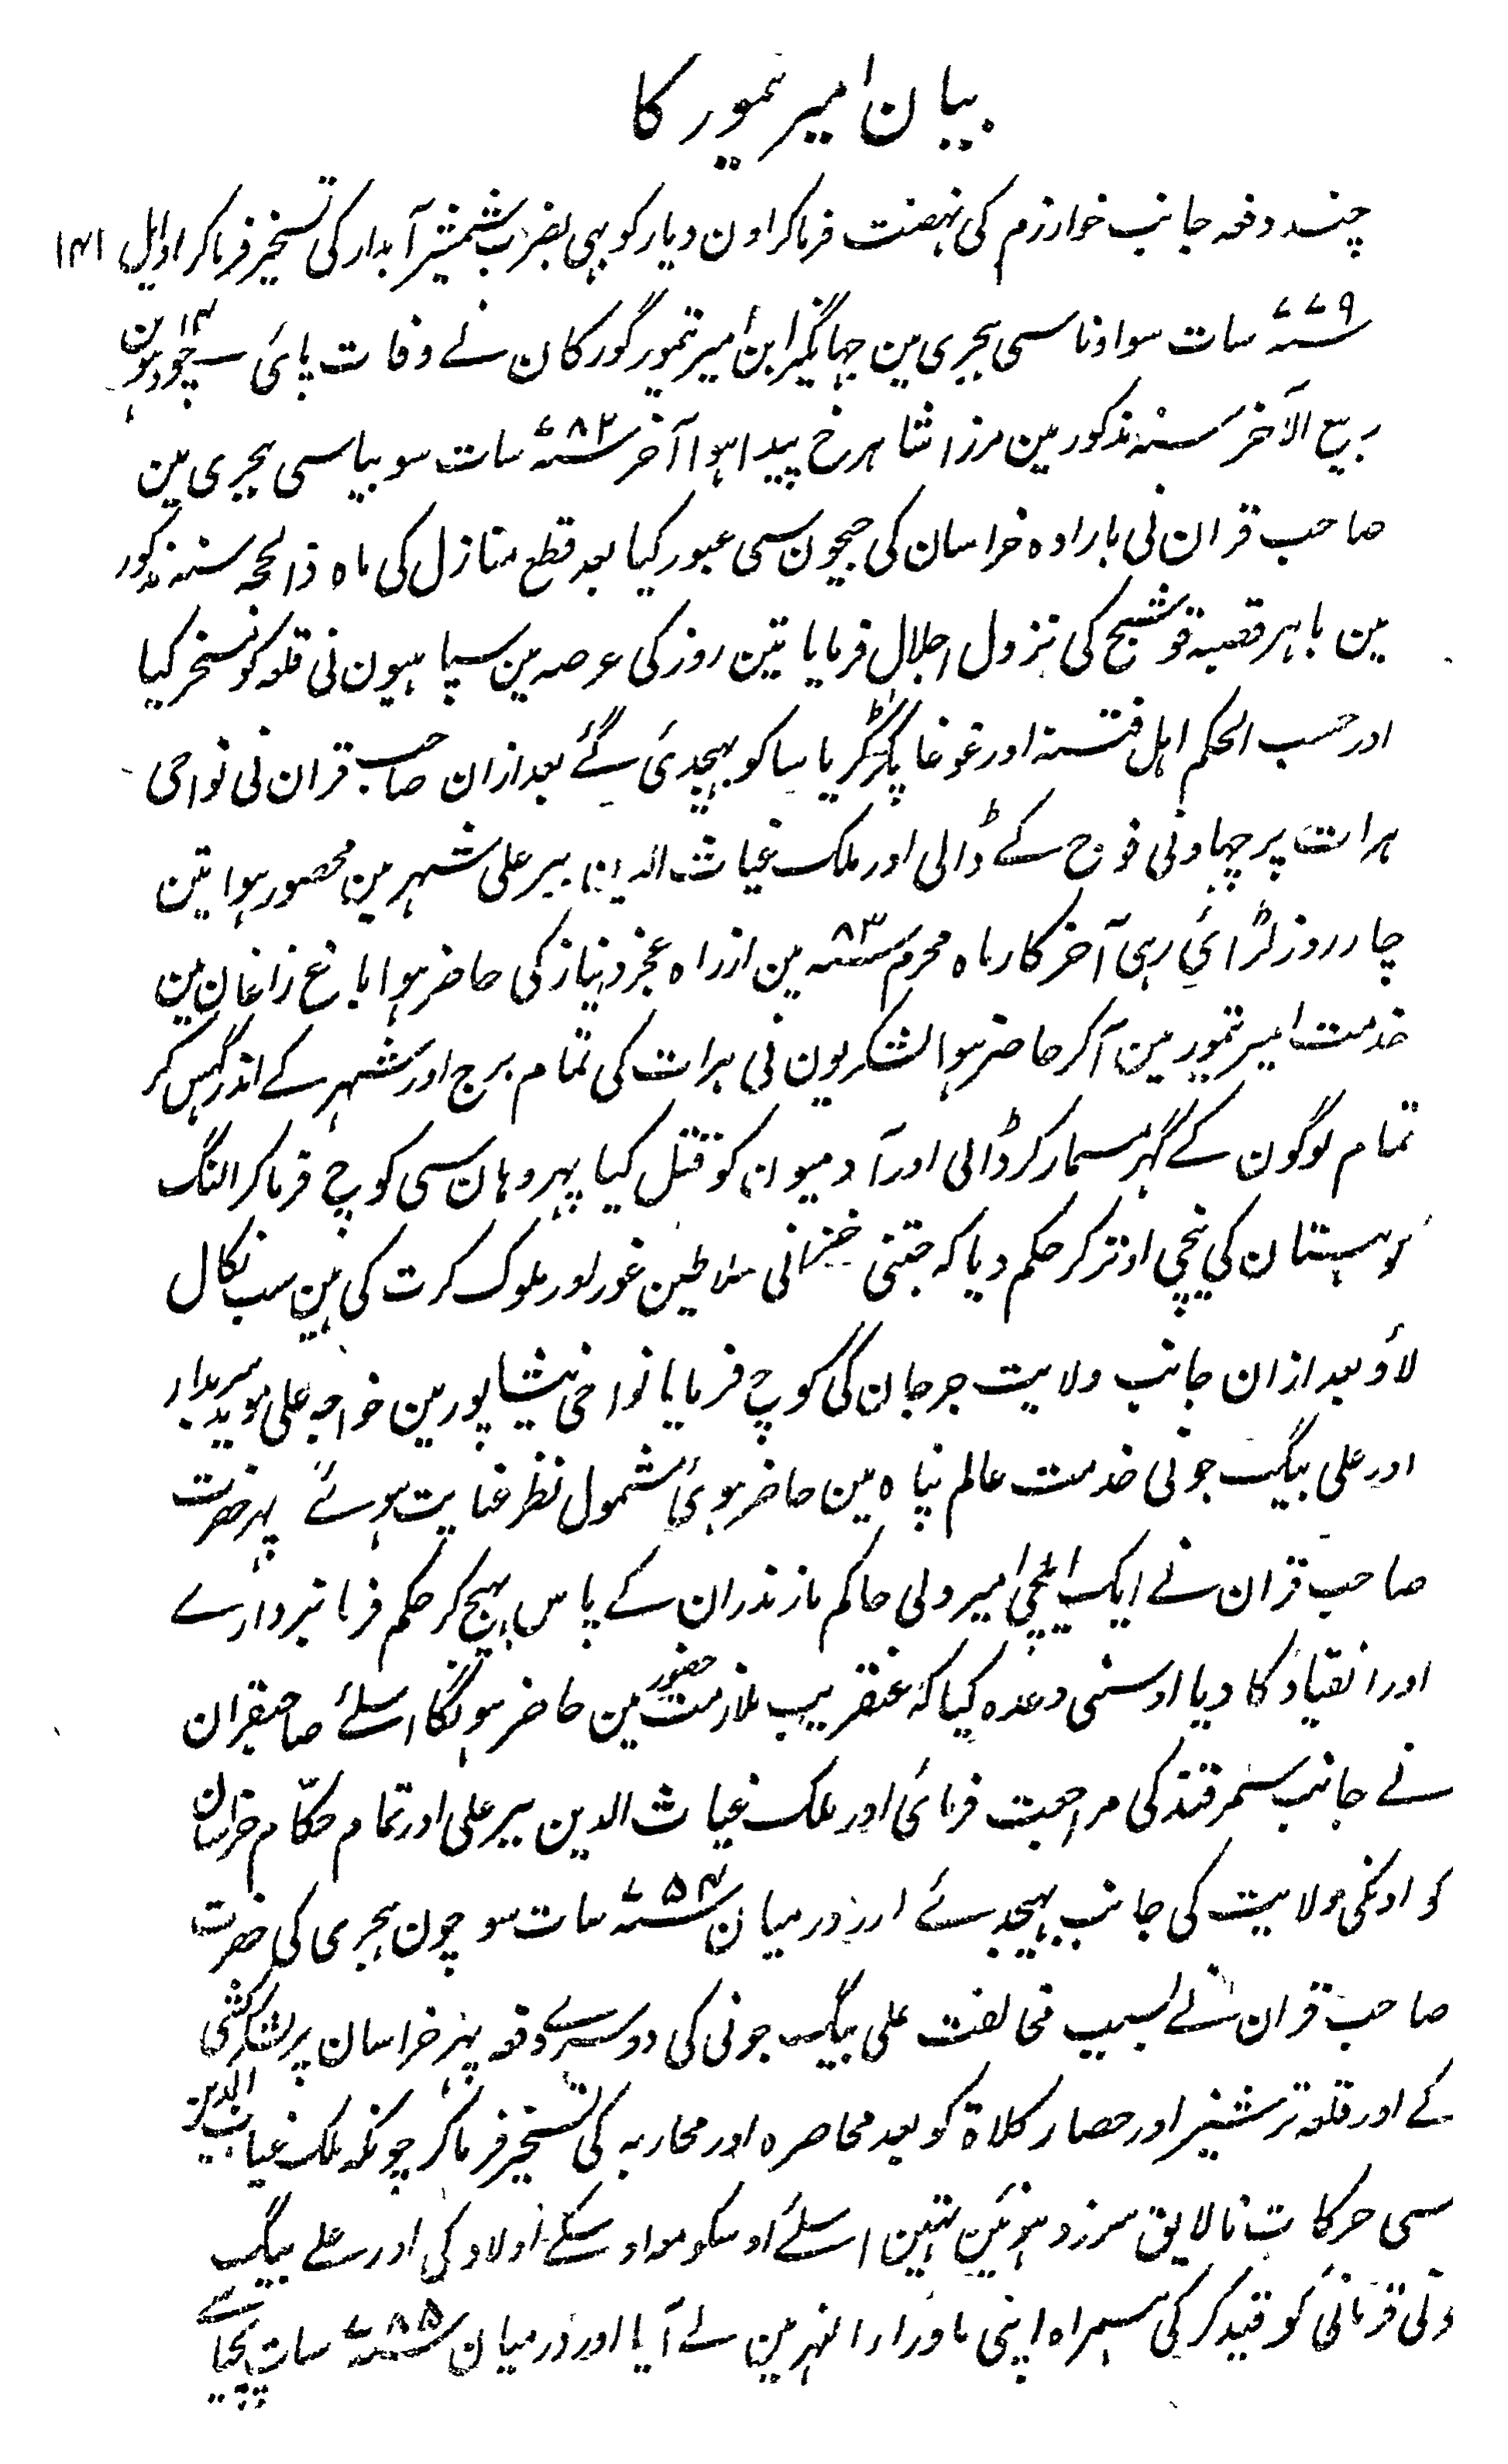 بیان امیر تیمور کا
چند دفعہ جانب خوارزم کی نہضت فرماکر اون دیار کو بہی بضرب شمشیر آبدار کی تسخیر فرماکر اوایل ۱۴۱
۷۷۹ سنہ سات سو اوناسی ہجری مین جہانگیر ابن امیر تیمور گورکان نے وفات پائی ۱۴ چودہوین
ربیع الآخر سنہ مذکور مین مرزا شاہرخ پیدا ہوا آخر سنہ ۷۸۲ سات سو بیاسی ہجری مین
صاحب قران نی بارادہ خراسان کی جیحون سی عبور کیا بعد قطع منازل کی ماہ ذالحجہ سنہ مذکور
مین باہر قصبہ فوشنج کی نزول اجلال فرمایا تین روز کی عرصہ مین سپاہیون نی قلعہ کو مسخر کیا
اور حسب الحکم اہل فتنہ اور غوغا پکڑکر یاسا کو بہیجدئی گئے بعد ازان صاحب قران نی نواحی
ہرات پر چہاونی فوج کے ڈالی اور ملک غیاث الدین پیر علی شہر مین محصور ہوا تین
چار روز لڑائی رہی آخر کار ماہ محرم سنہ ۸۳ مین از راہ عجز و نیاز کی حاضر ہوا باغ زاغان مین
خدمت امیر تیمور مین آکر حاضر ہوا لشکریون نی ہرات کی تمام برج اور شہر کے اندر گہس کر
تمام لوگون کے گہر مسمار کر ڈالی اور آدمیون کو قتل کیا پہر وہان سی کوچ فرماکر النگ
کوہستان کی نیچی اوتر کر حکم دیا کہ جتنی خزانی سلاطین غور اور ملوک کرت کی ہین سب نکال
لاؤ بعد ازان جانب ولایت جرجان کی کوچ فرمایا نواحی نیشاپور مین خواجہ علی موید سربدار
اور علی بیگ جونی خدمت عالم پناہ مین حاضر ہوئی مشمول نظر عنایت ہوئے پہر حضرت
صاحب قران نے ایک ایلچی امیر ولی حاکم مازندران کے پاس بہیج کر حکم فرمانبردارے
اور انقیاد کا دیا اوسنی وعدہ کیا کہ عنقریب ملازمت حضور مین حاضر ہونگا اسلئے صاحبقران
نے جانب سمرقند کی مراجعت فرمائی اور ملک غیاث الدین پیر علی اور تمام حکّام خراسان
کو اونکی ولایت کی جانب بہیجدئے اور درمیان سنہ ۷۵۴ سات سو چون ہجری کی حضرت
صاحب قران نے بسبب مخالفت علی بیگ جونی کی دوسرے دفعہ پہر خراسان پر لشکر کشی
کے اور قلعہ ترشیز اور حصار کلاة کو بعد محاصرہ اور محاربہ کی تسخیر فرماکر چونکہ ملک غیاث الدین
سی حرکات نالایق سرزد ہوئین تہین اسلئے اوسکو مع اوسکے اولاد کی اور علے بیگ
کو قید کر کی ہمراہ اپنی ماوراء النہر مین لے آیا اور درمیان سنہ ۷۸۵ سات سے پچیا